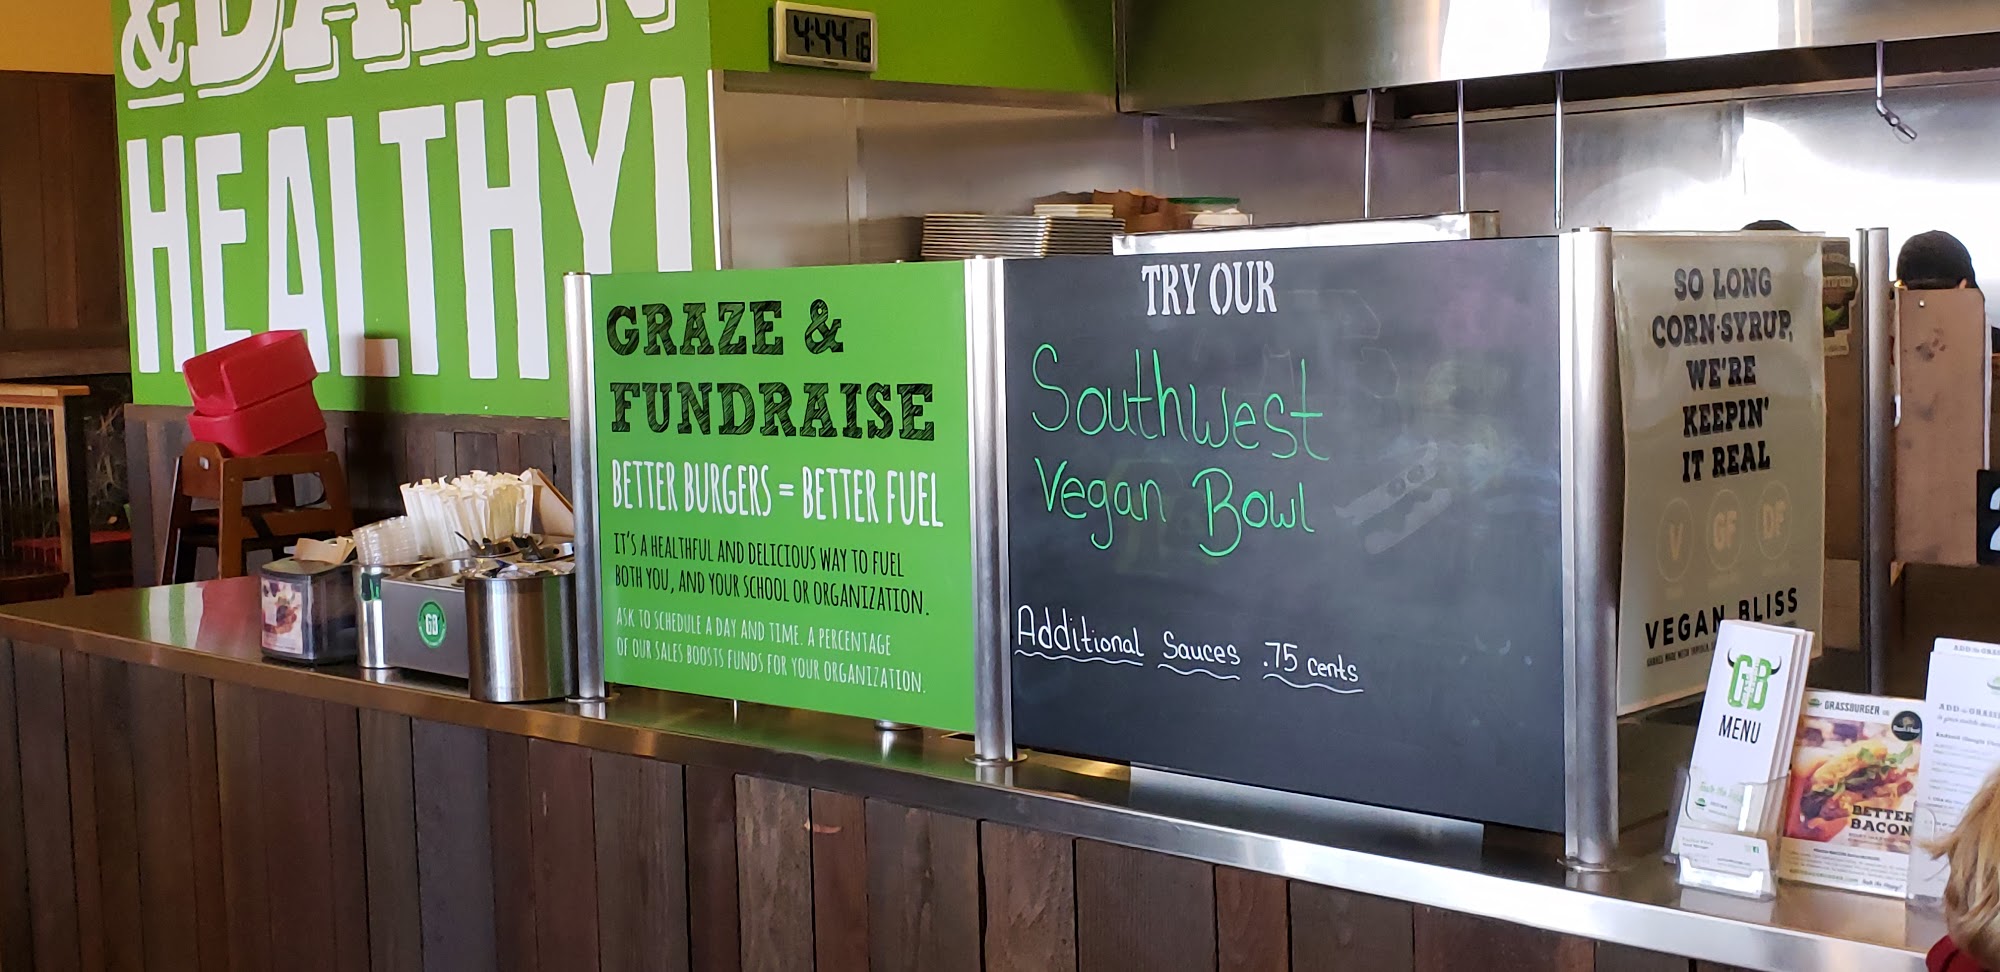 & DARN
HEALTHY!
4:44 16
GRAZE &
FUNDRAISE
BETTER BURGERS = BETTER FUEL
IT'S A HEALTHFUL AND DELICIOUS WAY TO FUEL
BOTH YOU, AND YOUR SCHOOL OR ORGANIZATION.
ASK TO SCHEDULE A DAY AND TIME. A PERCENTAGE
OF OUR SALES BOOSTS FUNDS FOR YOUR ORGANIZATION.
GB
TRY OUR
Southwest
Vegan Bowl
Additional Sauces .75 cents
SO LONG
CORN-SYRUP,
WE'RE
KEEPIN'
IT REAL
V GF DF
VEGAN BLISS
GB
MENU
GRASSBURGER
BETTER
BACON